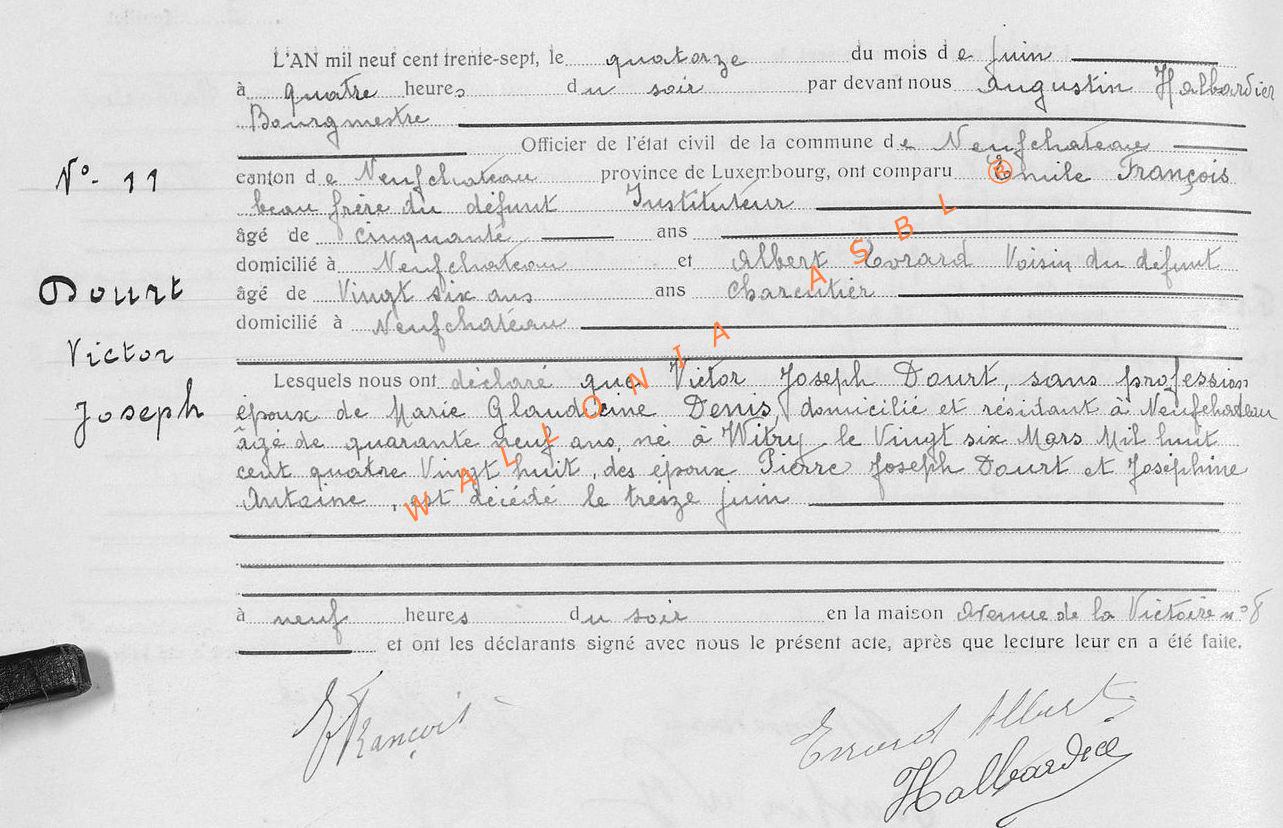 L'AN mil neuf cent trente-sept, le quatorze du mois de juin
à quatre heures du soir par devant nous Augustin Halbardier
Bourgmestre
Officier de l'état civil de la commune de Neufchateau
N° 11
canton de Neufchateau province de Luxembourg, ont comparu Emile François
beau frère du défunt Instituteur
âgé de cinquante ans
domicilié à Neufchateau et Albert Evrard Voisin du defunt
Dourt
âgé de Vingt six ans ans Charcutier
domicilié à Neufchatéau
Victor
Lesquels nous ont déclaré que Victor Joseph Dourt, sans profession
Joseph
époux de Marie Denis, domicilié et résidant à Neufchateau
âgé de quarante neuf ans, né à Witry, le Vingt six Mars Mil huit
cent quatre Vingt huit, des époux Pierre Joseph Dourt et Joséphine
Antoine, est décédé le treize juin
à neuf heures du soir en la maison Avenue de la Victoire n° 8
et ont les déclarants signé avec nous le présent acte, après que lecture leur en a été faite.
E François
Evrard Albert
Halbardier
WALLONIA ASBL ®